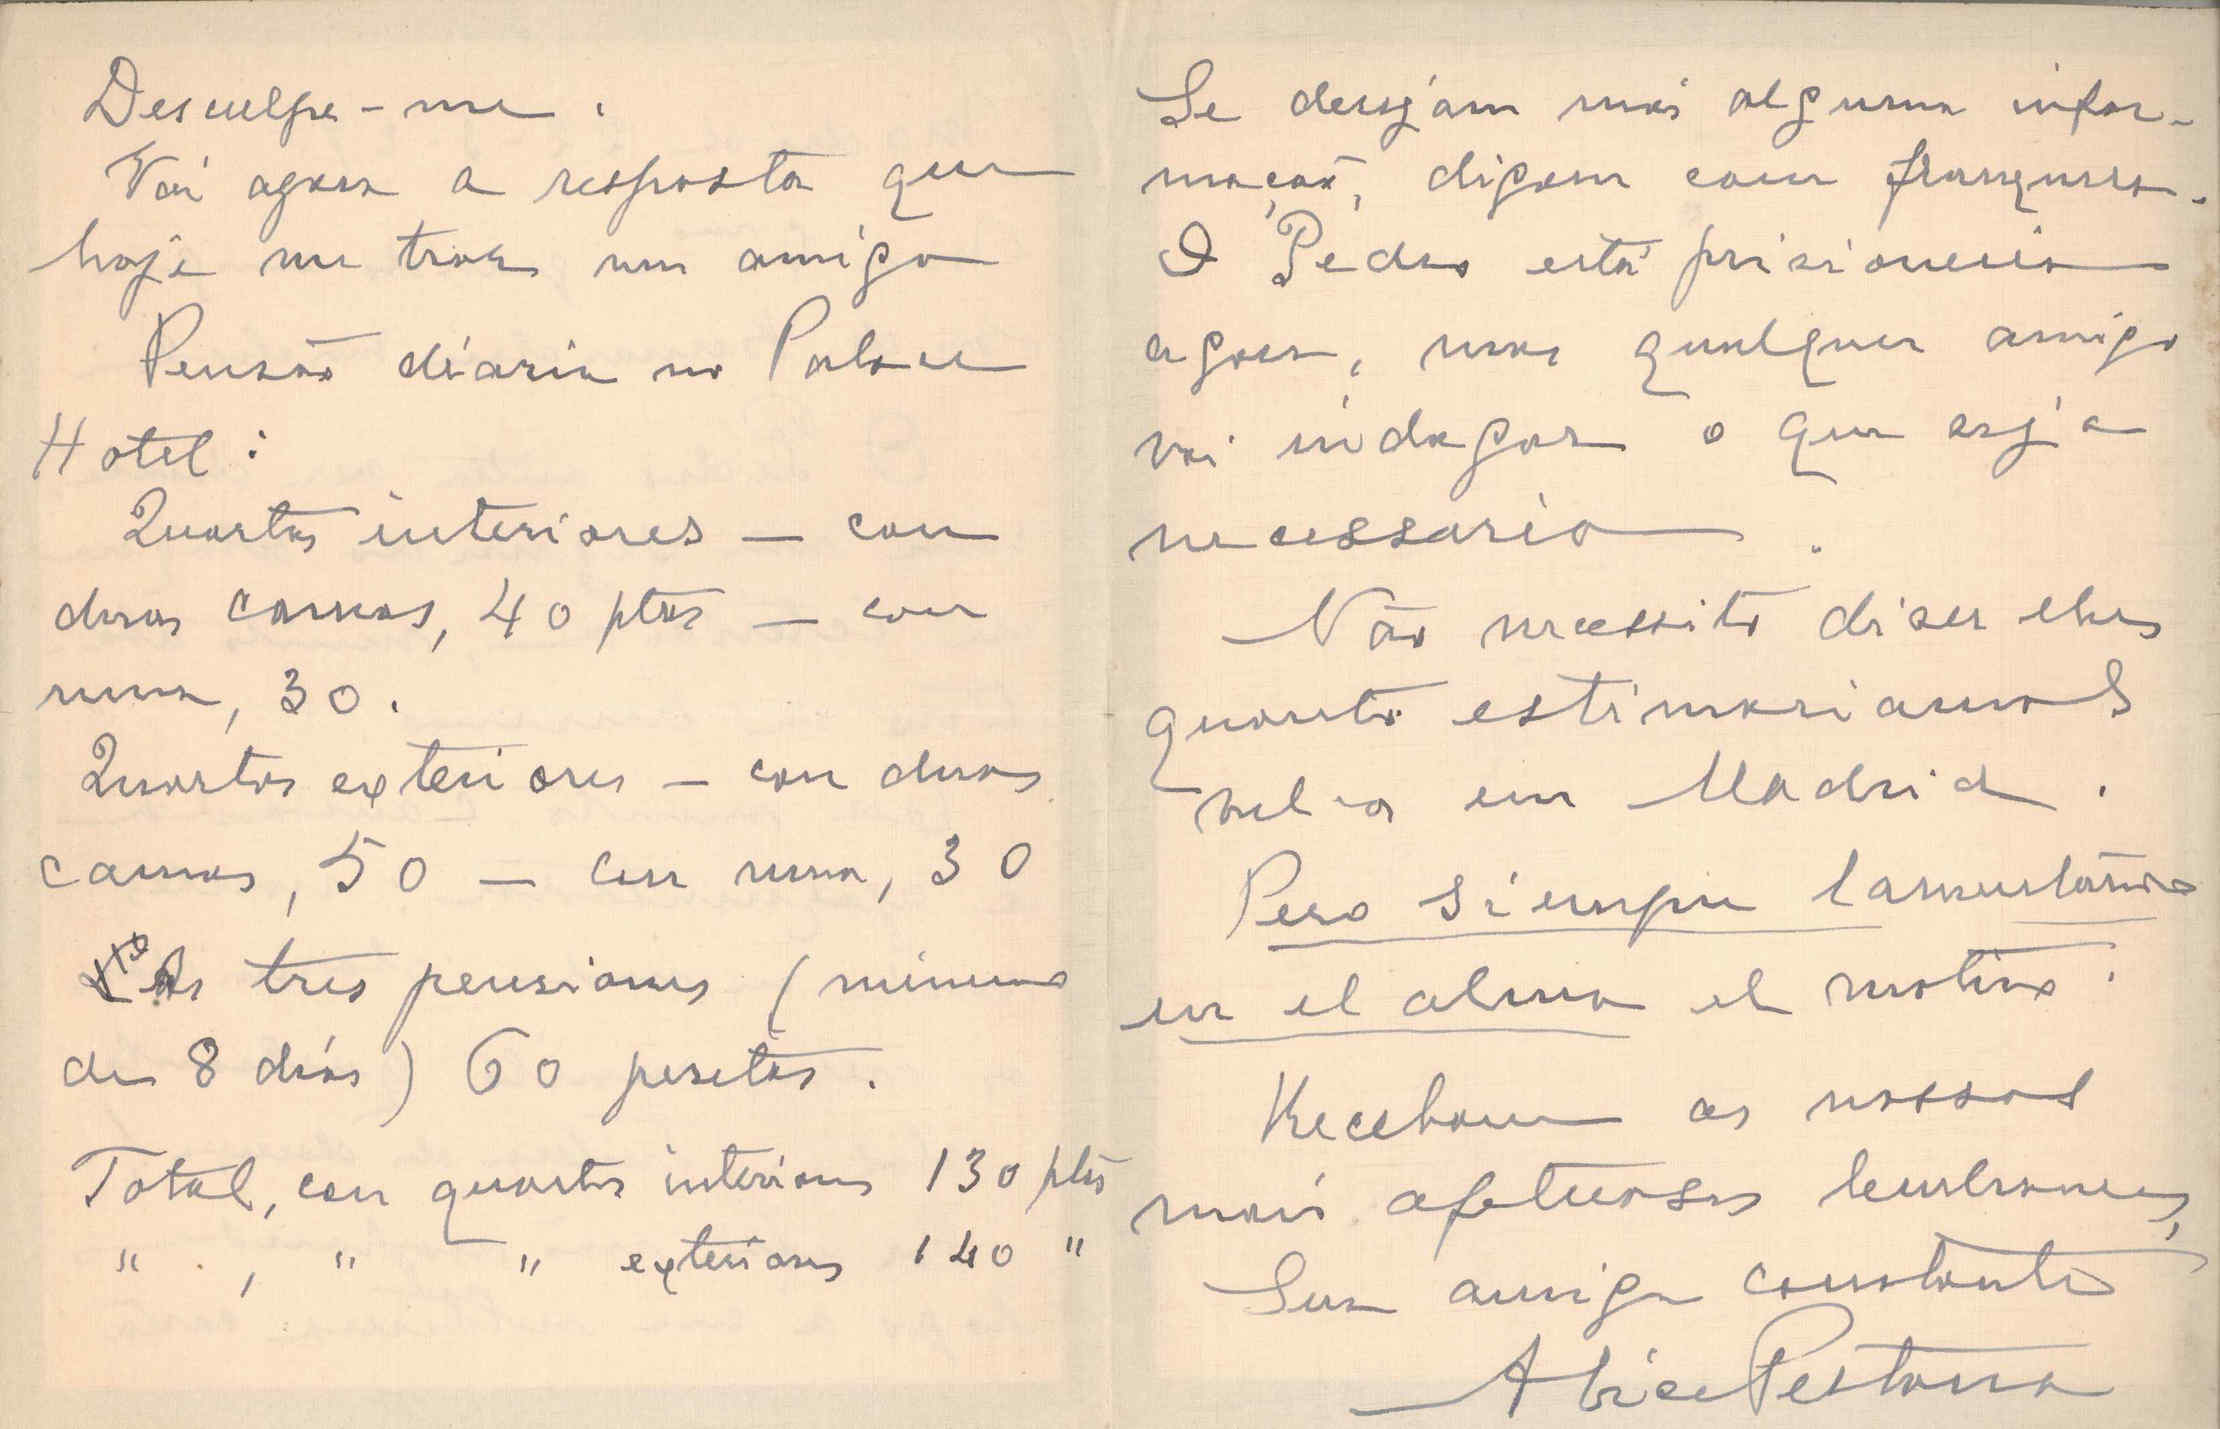 Desculpe-me.
Vai agora a resposta que
hoje me traz um amigo
Pensão diaria no Palace
Hotel:
Quartos interiores — com
duas camas, 40 ptas — com
uma, 30.
Quartos exteriores — com duas
camas, 50 — com uma, 30
As tres pensiones (minimo
de 8 dias) 60 pesetas.
Total, com quartos interiores 130 ptas
" , " " exteriores 140 "
Se desejam mais alguma infor-
mação, digam com franqueza.
O Pedro está prisioneiro
agora, mas qualquer amigo
vai indagar o que seja
necessario.
Não necessito dizer-lhes
quanto estimariamos
vel-os em Madrid.
Pero siempre lamentando
en el alma el motivo.
Recebam as nossas
mais afetuosas lembranças,
Sua amiga constante
Alice Pestana